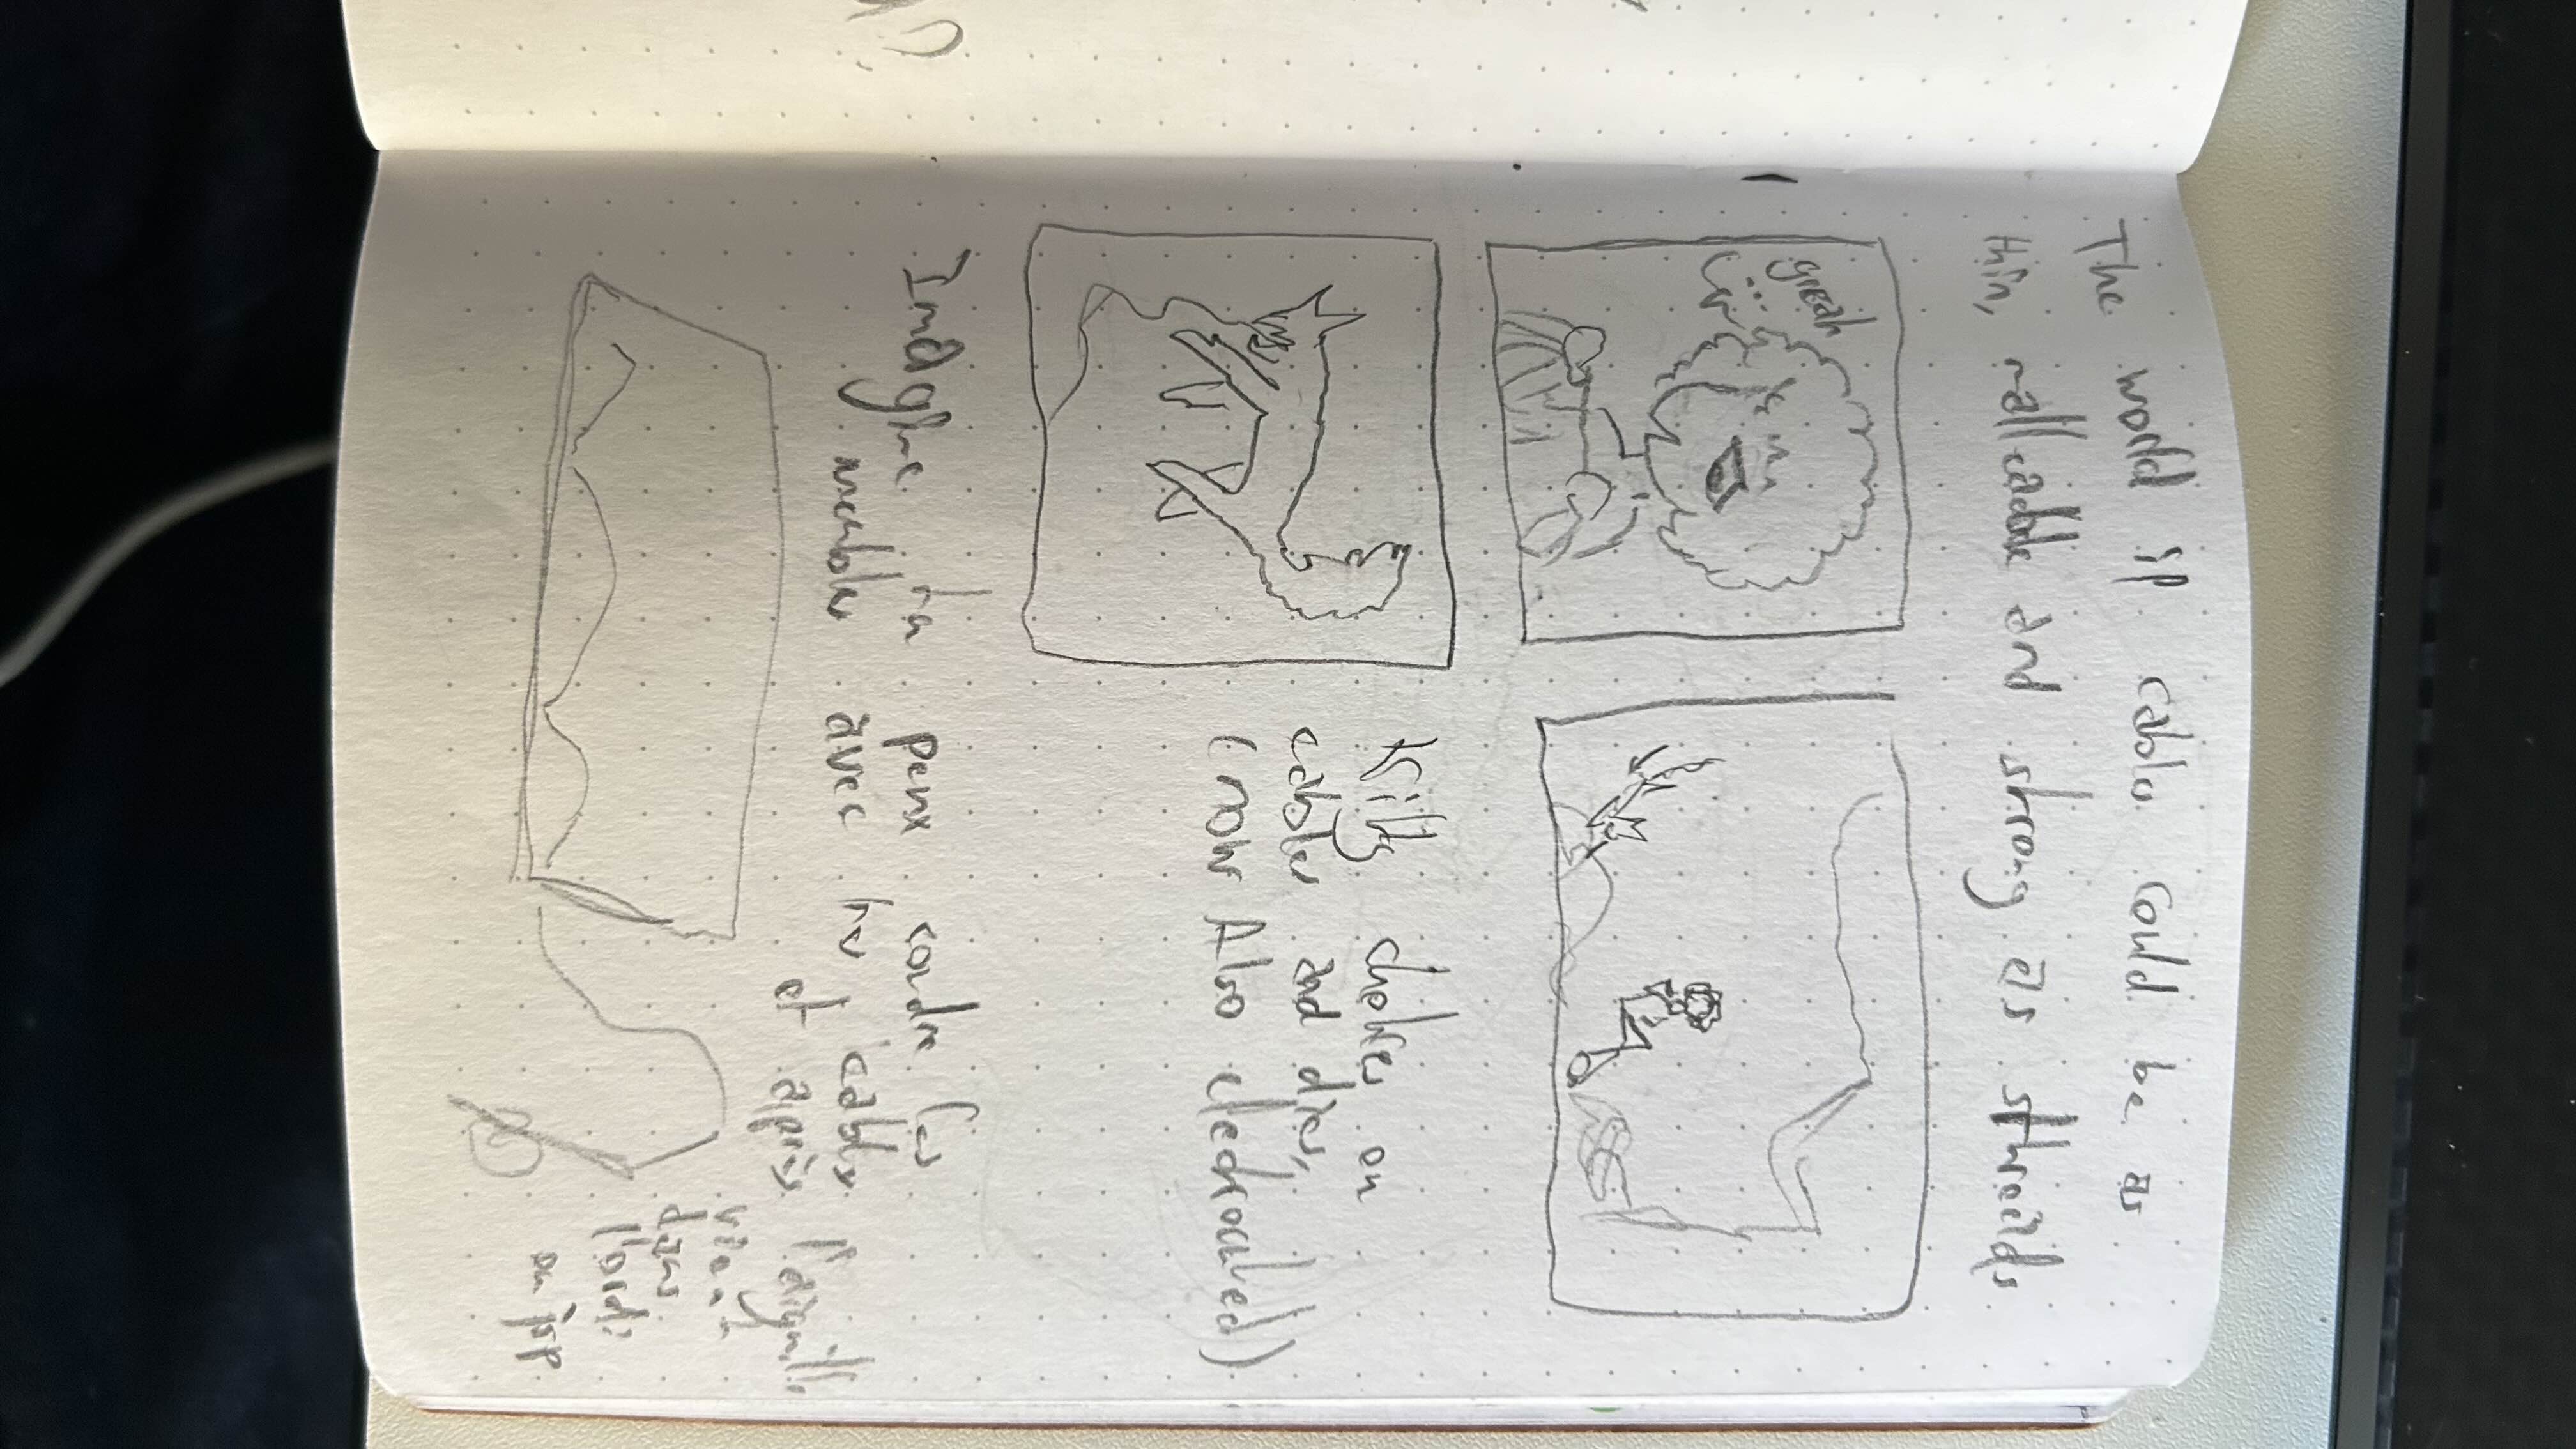 The world if cable could be as
thin, malleable and strong as sthreads
great
...
Kitty chokes on
cables and dies,
(now Also electrocuted)
Imagine tu peux coudre les
meubles avec tes cables
et après
l'aiguille
vient
dans
l'ordi